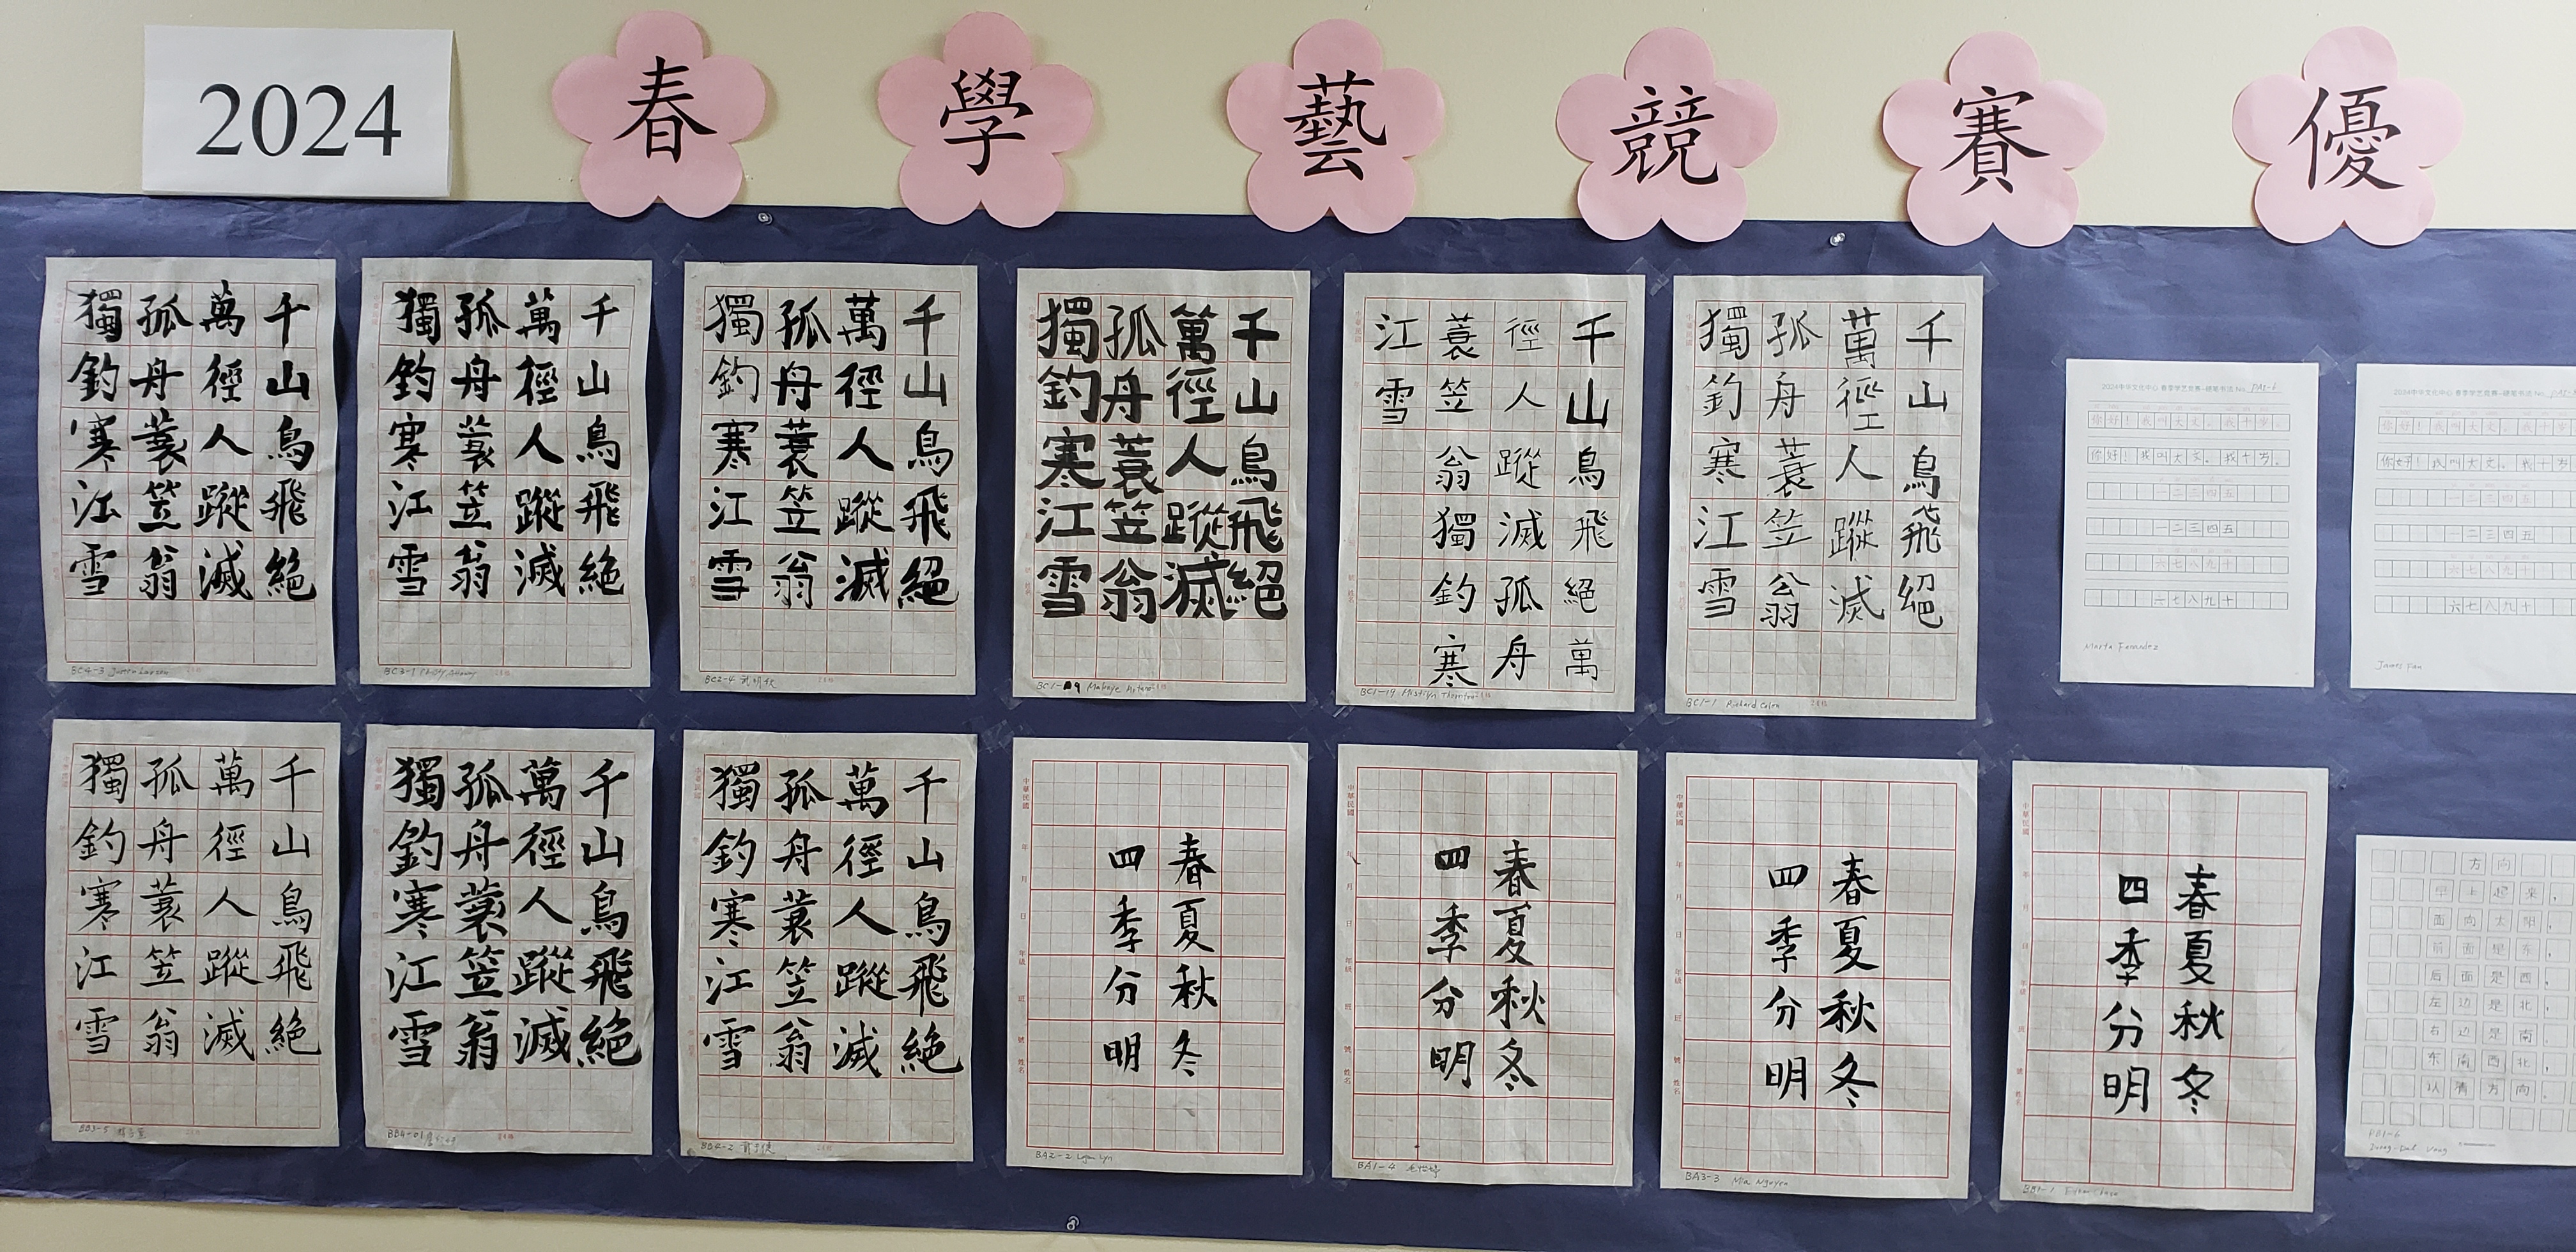 2024 春 學 藝 競 賽 優
千山鳥飛絕
萬徑人蹤滅
孤舟蓑笠翁
獨釣寒江雪
BC4-3
千山鳥飛絕
萬徑人蹤滅
孤舟蓑笠翁
獨釣寒江雪
BC3-1
千山鳥飛絕
萬徑人蹤滅
孤舟蓑笠翁
獨釣寒江雪
BC2-4
千山鳥飛絕
萬徑人蹤滅
孤舟蓑笠翁
獨釣寒江雪
千山鳥飛絕萬
徑人蹤滅孤舟
蓑笠翁獨釣寒
江雪
BC1-19
千山鳥飛絕
萬徑人蹤滅
孤舟蓑笠翁
獨釣寒江雪
BC1-1 Richard Colen
你好！我叫大文。我十岁。
你好！我叫大文。我十岁。
一二三四五
一二三四五
六七八九十
六七八九十
Marta Fernandez
你好！我叫大文。我十岁
你好！我叫大文。我十岁
一二三四五
一二三四五
六七八九十
六七八九十
James Fan
千山鳥飛絕
萬徑人蹤滅
孤舟蓑笠翁
獨釣寒江雪
BB3-5
千山鳥飛絕
萬徑人蹤滅
孤舟蓑笠翁
獨釣寒江雪
BB4-01
千山鳥飛絕
萬徑人蹤滅
孤舟蓑笠翁
獨釣寒江雪
BB4-2
春夏秋冬
四季分明
中華民國
BA2-2 Logan Lyn
春夏秋冬
四季分明
中華民國
BA1-4
春夏秋冬
四季分明
中華民國
BA3-3 Mia Nguyen
春夏秋冬
四季分明
中華民國
方向
早上起来，
面向太阳，
前面是东，
后面是西，
左边是北，
右边是南，
东南西北，
认清方向。
PB1-6